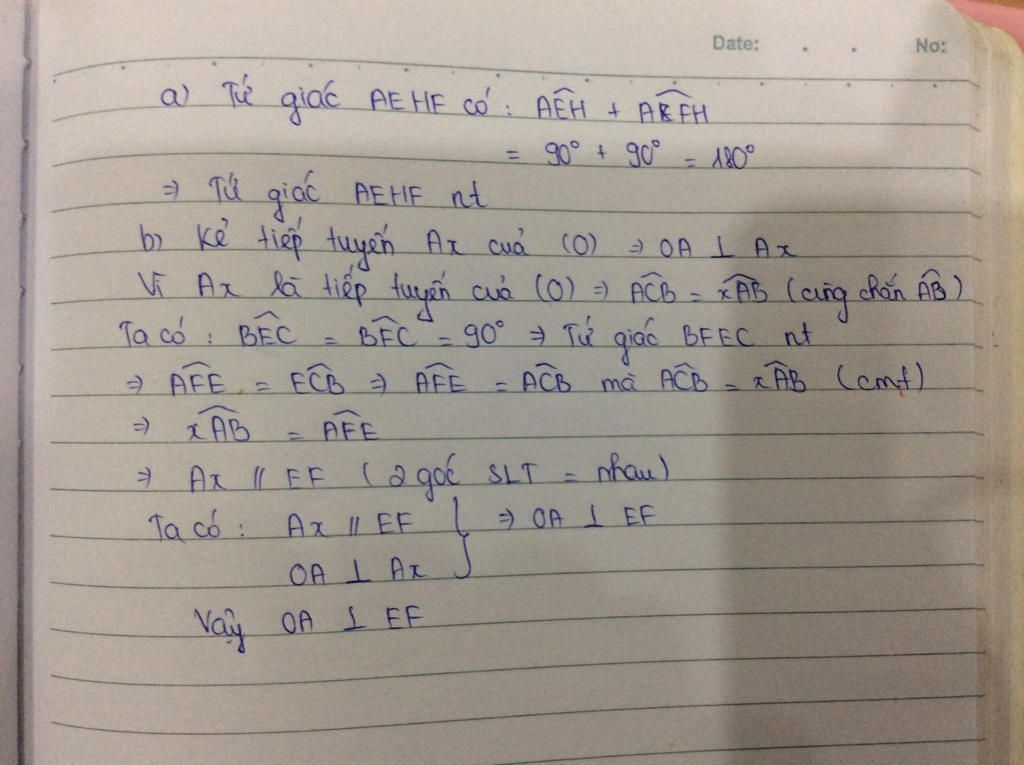 Date: . . No:
a) Tứ giác AEHF có: AÊH + AF̂H
= 90° + 90° = 180°
⇒ Tứ giác AEHF nt
b) Kẻ tiếp tuyến Ax cuả (O) ⇒ OA ⊥ Ax
Vì Ax là tiếp tuyến cuả (O) ⇒ AĈB = xÂB (cùng chắn AB̂)
Ta có: BÊC = BF̂C = 90° ⇒ Tứ giác BFEC nt
⇒ AF̂E = EĈB ⇒ AF̂E = AĈB mà AĈB = xÂB (cmt)
⇒ xÂB = AF̂E
⇒ Ax // EF (2 góc SLT = nhau)
Ta có: Ax // EF } ⇒ OA ⊥ EF
OA ⊥ Ax
Vậy OA ⊥ EF